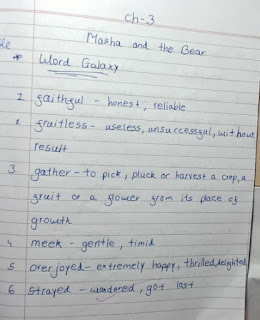 Ch-3
Masha and the Bear
* Word Galaxy
1 faithful - honest, reliable
2 fruitless - useless, unsuccessful, without
result
3 gather - to pick, pluck or harvest a crop, a
fruit or a flower from its place of
growth
4 meek - gentle, timid
5 overjoyed - extremely happy, thrilled, delighted
6 strayed - wandered, got last